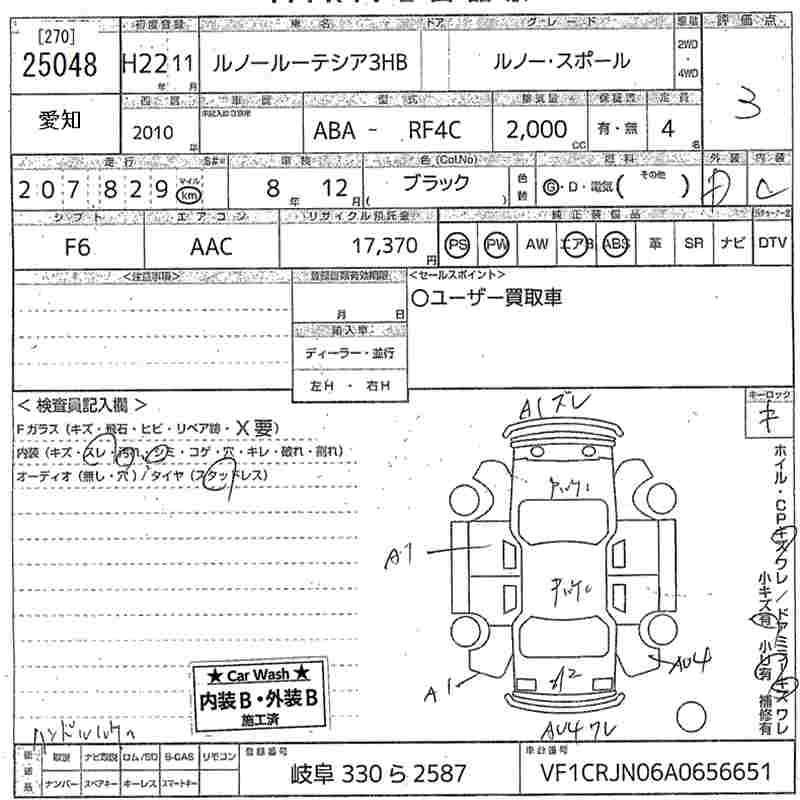 [270]
25048
愛知
初度登録 車名 ドア グレード 車歴 評価点
H22 11 年 月
ルノールーテシア3HB
ルノー・スポール
2WD・4WD
3
西暦 車歴 型式 排気量 保証書 定員
2010 年
ABA - RF4C
2,000 CC
有・無
4 名
走行 車検 色(Col.No) 燃料 外装 内装
207829 マイル km
8年 12月
ブラック
色替
G・D・電気( その他 )
C
シフト エアコン リサイクル預託金 純正装備品
F6
AAC
17,370 円
PS PW AW エアB ABS 革 SR ナビ DTV
<注意事項>
登録書類有効期限
月 日
輸入車
ディーラー・並行
左H・右H
<セールスポイント>
○ユーザー買取車
<検査員記入欄>
Fガラス(キズ・飛石・ヒビ・リペア跡・X要)
内装(キズ・スレ・汚れ・シミ・コゲ・穴・キレ・破れ・割れ)
オーディオ(無し・穴)/タイヤ(スタッドレス)
キーロック
キ
A1ズレ
A1
A1
AU4
AU4ワレ
ホイル・CPキズワレ/ドアミラーキズワレ
小キズ有 小凹有 補修有
★ Car Wash ★
内装B・外装B
施工済
取説 ナビ取説 ロム/SD B-CAS リモコン
ナンバー スペアキー キーレス スマートキー
登録番号
岐阜 330 ら 2587
車台番号
VF1CRJN06A0656651